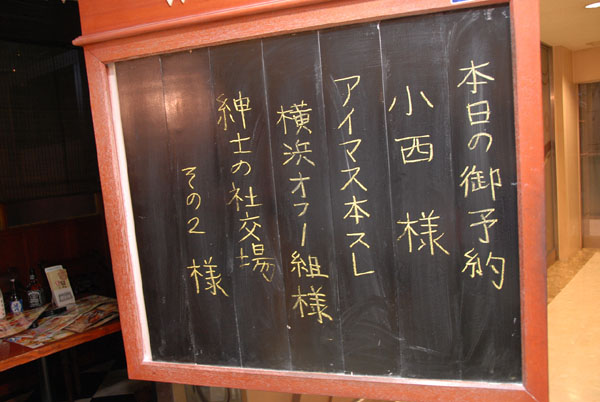 本日の御予約
小西 様
アイマス本スレ
横浜オフ一組様
紳士の社交場
その2 様